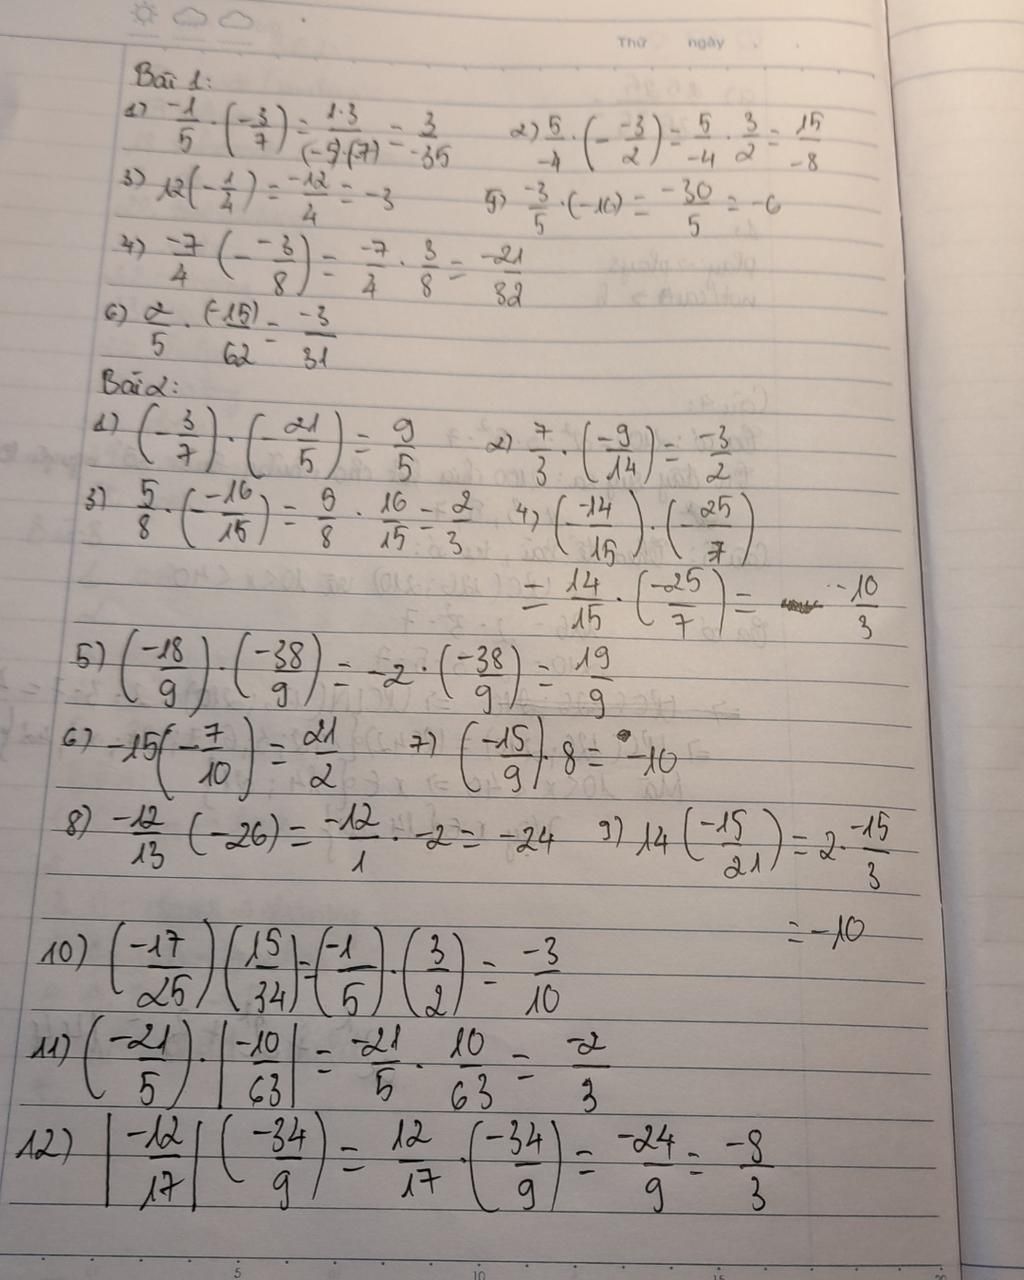 Thứ ngày
Bài 1:
1) -1/5 . (-3/7) = 1.3/(-5).(7) = 3/-35 2) 5/-4 . (- -3/2) = 5/-4 . 3/2 = 15/-8
3) 12(-1/4) = -12/4 = -3 5) -3/5 . (-10) = -30/5 = -6
4) -7/4 (- -3/8) = -7/4 . 3/8 = -21/32
6) 2/5 . (-15)/62 = -3/31
Bài 2:
1) (-3/7) . (-21/5) = 9/5 2) 7/3 . (-9/14) = -3/2
3) 5/8 . (- -16/15) = 5/8 . 16/15 = 2/3 4) (-14/15) . (-25/7)
= 14/15 . (-25/7) = -10/3
5) (-18/9) . (-38/9) = -2 . (-38/9) = 19/9
6) -15(-7/10) = 21/2 7) (-15/9) . 8 = -10
8) -12/13 (-26) = -12/1 . -2 = -24 9) 14 (-15/21) = 2 . -15/3
= -10
10) (-17/25) (15/34) = (-1/5) . (3/2) = -3/10
11) (-21/5) . |-10/63| = -21/5 . 10/63 = -2/3
12) |-12/17| (-34/9) = 12/17 . (-34/9) = -24/9 = -8/3
5 10 15 20